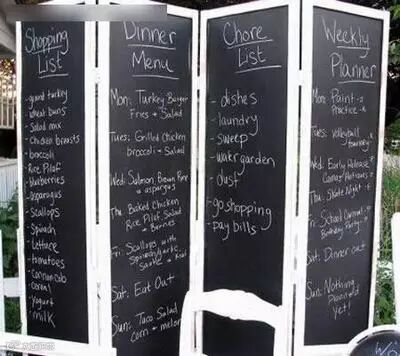 Shopping
List
- ground turkey
- wheat buns
- Salad mix
- Chicken breasts
- broccoli
- Rice Pilaf
- blueberries
- asparagus
- scallops
- Spinach
- Lettuce
- tomatoes
- corn on cob
- cereal
- yogurt
- milk
Dinner
Menu
Mon: Turkey Burger
Fries + Salad
Tues: Grilled Chicken
broccoli + Salad
Wed: Salmon, Brown Rice
+ asparagus
Thu: Baked Chicken
Rice Pilaf Salad
+ Berries
Fri: Scallops with
Spinach, garlic,
Sat: Eat Out
Sun: Taco Salad
corn + melon
Chore
List
- dishes
- laundry
- sweep
- water garden
- dust
- go shopping
- pay bills
Weekly
Planner
Mon: Paint
Practice
Tues: Volleyball
Wed: Early Release
Thu: Skate Night
Fri: School Carnival
Birthday Party
Sat: Dinner out
Sun: Nothing
Planned
Yet!